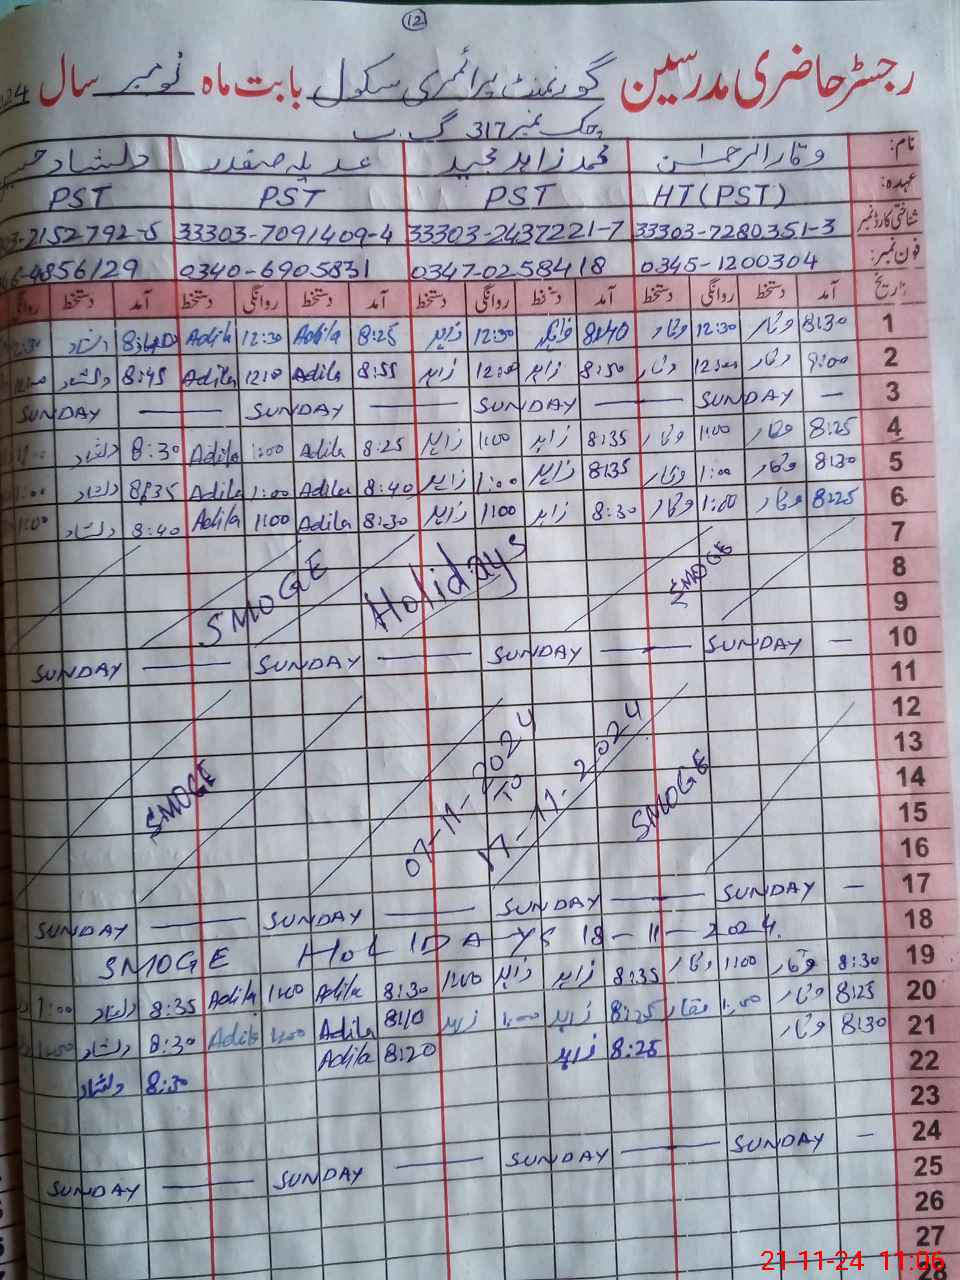 12
رجسٹر حاضری مدرسین گورنمنٹ پرائمری سکول بابت ماہ نومبر سال
چک نمبر 317 گ ب
نام: وقار الرحمٰن محمد زاہد مجید عدیلہ صفدر دلشاد
عہدہ: HT(PST) PST PST PST
شناختی کارڈ نمبر 33303-7280351-3 33303-2437221-7 33303-7091409-4 03-2152792-5
فون نمبر: 0345-1200304 0347-0258418 0340-6905831 4856129
تاریخ آمد دستخط روانگی دستخط آمد دستخط روانگی دستخط آمد دستخط روانگی دستخط آمد دستخط روانگی
1 8:30 وقار 12:30 وقار 8:40 زاہد 12:30 زاہد 8:25 Adila 12:30 Adila 8:40 دلشاد
2 9:00 وقار 12:00 وقار 8:50 زاہد 12:00 زاہد 8:55 Adila Adila 8:45 دلشاد
3 — SUNDAY — SUNDAY — SUNDAY — SUNDAY
4 8:25 وقار 1:00 وقار 8:35 زاہد 1:00 زاہد 8:25 Adila 1:00 Adila 8:30 دلشاد
5 8:30 وقار 1:00 وقار 8:35 زاہد 1:00 زاہد 8:40 Adila 1:00 Adila 8:35 دلشاد 1:00
6 8:25 وقار 1:00 وقار 8:30 زاہد 1:00 زاہد 8:30 Adila 1:00 Adila 8:40 دلشاد 1:00
7
8 SMOGE Holidays SMOGE
9
10 — SUNDAY — SUNDAY — SUNDAY — SUNDAY
11
12
13
14 SMOGE 07-11-2024 TO 17-11-2024 SMOGE
15
16
17 — SUNDAY — SUNDAY — SUNDAY — SUNDAY
18 SMOGE HOLIDAYS 18-11-2024.
19 8:30 وقار 1:00 وقار 8:35 زاہد زاہد 1:00 8:30 Adila 1:00 Adila 8:35 دلشاد 1:00
20 8:25 وقار 1:00 وقار 8:25 زاہد 1:00 زاہد 8:10 Adila 1:00 Adila 8:30 دلشاد 1:00
21 8:30 وقار 8:25 زاہد 8:20 Adila 8:30 دلشاد
22
23
24 — SUNDAY — SUNDAY — SUNDAY — SUNDAY
25
26
27
28
21-11-24 11:06